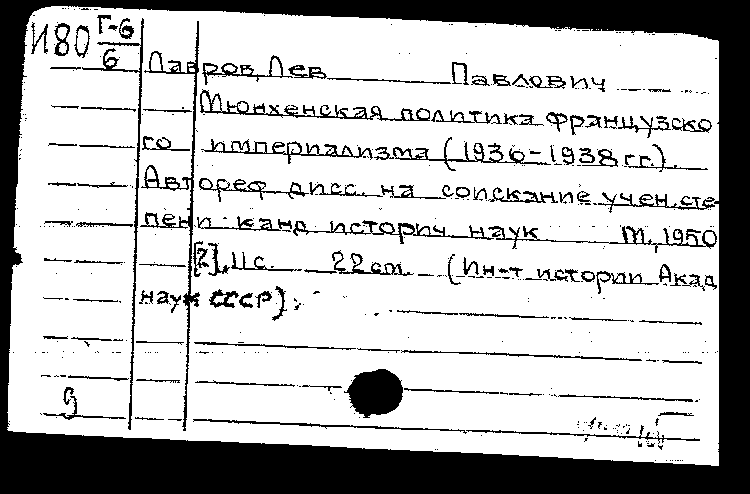 И80 Г-6
6
Лавров, Лев Павлович
Мюнхенская политика французско-
го империализма (1936-1938 гг.).
Автореф. дисс. на соискание учен. сте-
пени канд. историч. наук М., 1950
[2], 11 с. 22 cm. (Ин-т истории Акад.
наук СССР).
9